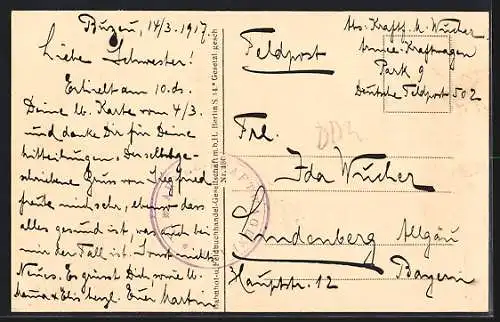 Buzeu, 14/3. 1917.
Liebe Schwester!
Erhielt am 10. ds.
Deine lb. Karte vom 4/3.
und danke Dir für Deine
Mitteilungen. Der selbstge-
schriebene Gruss von Siegfried
freute mich sehr, ebenso dass
alles gesund ist, was auch bei
mir der Fall ist. Sonst nichts
Neues. Es grüsst Dich sowie lb.
Mama & Elis herzl. Euer Martin
Bahnhof- u. Feldbuchhandel-Gesellschaft m.b.H. Berlin S 14 * Gesetzl. gesch.
Abs. Kraftf. M. Wucher
Armee-Kraftwagen
Park 9
Deutsche Feldpost 502
Feldpost
Frl.
Ida Wucher
Lindenberg Allgäu
Hauptstr. 12 Bayern